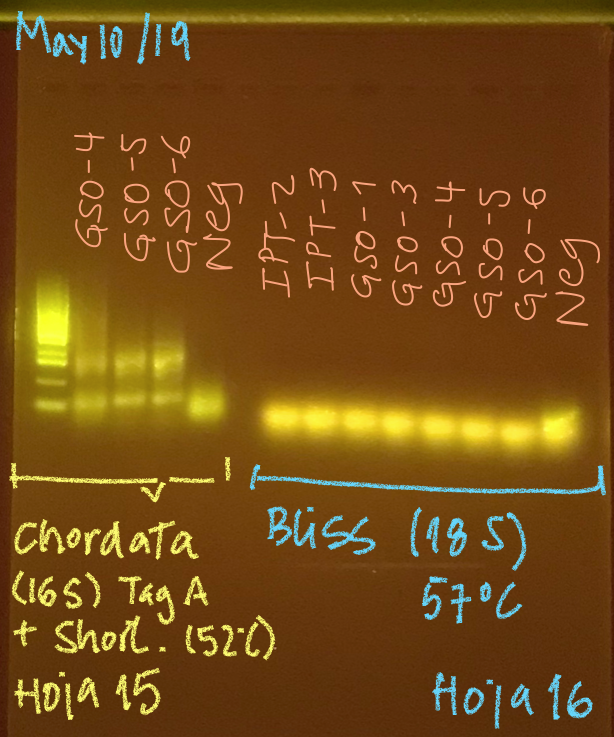 May 10/19
GSO-4
GSO-5
GSO-6
Neg
IPT-2
IPT-3
GSO-1
GSO-3
GSO-4
GSO-5
GSO-6
Neg
Chordata
(16S) Tag A
+ Short. (52°C)
Hoja 15
Bliss (18S)
57°C
Hoja 16